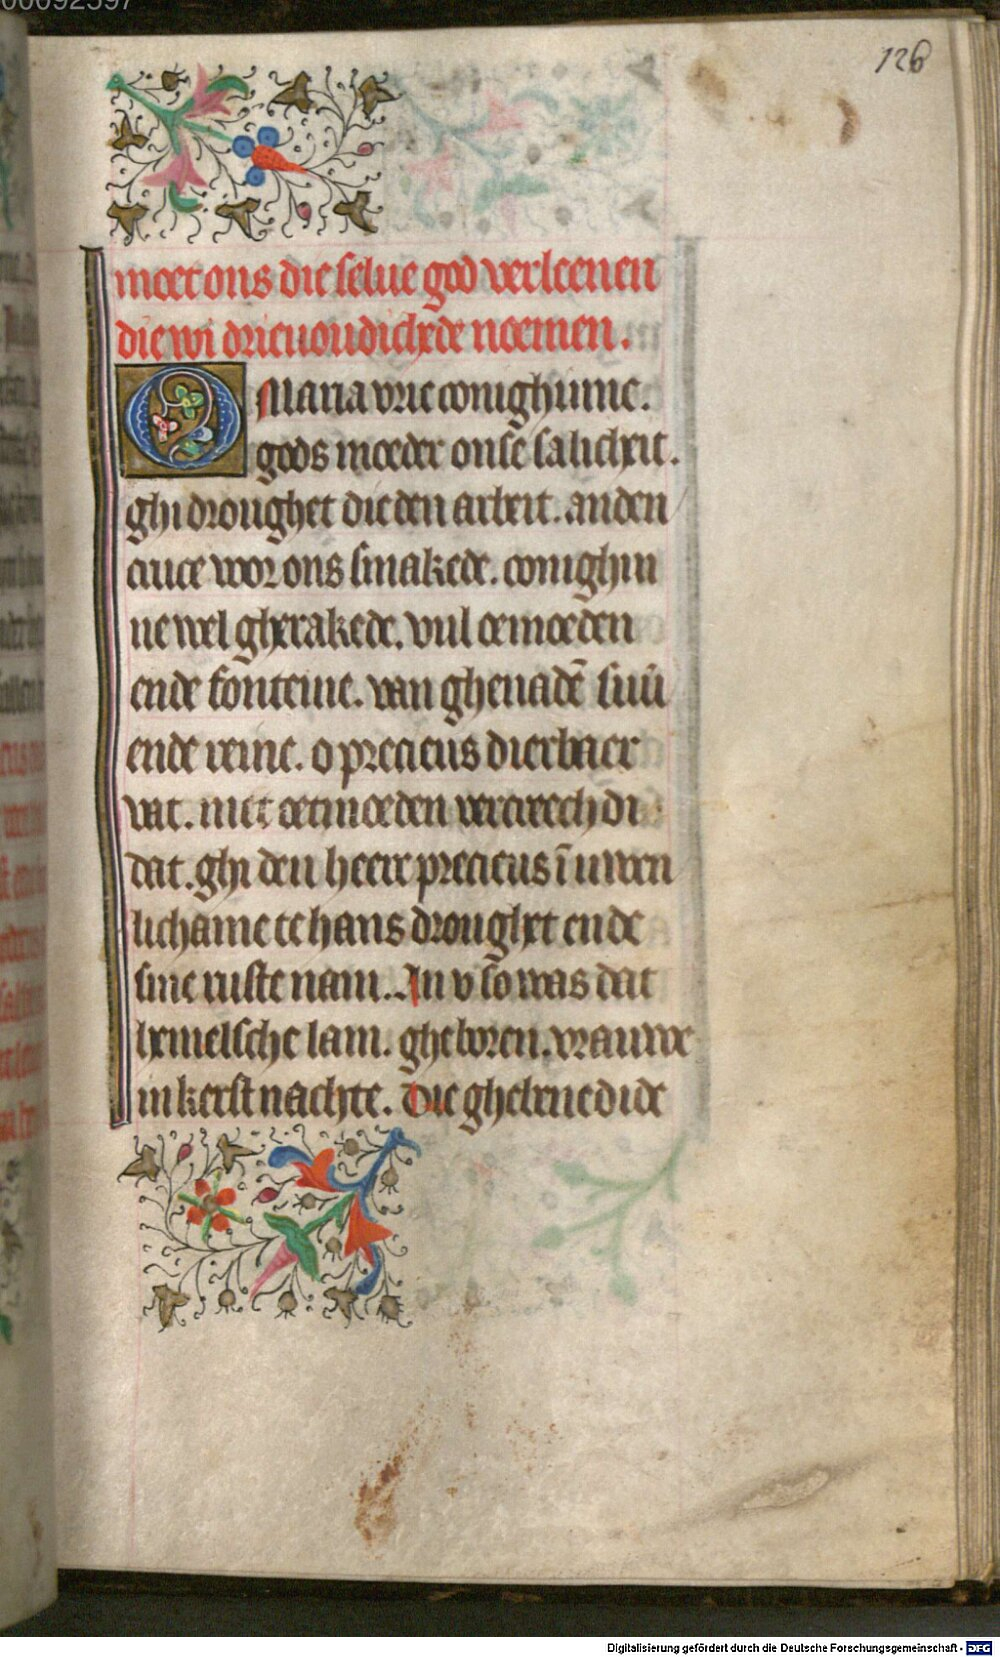 00092397
126
moet ons die selue god verleenen
die wi drieuoudichede noemen.
O Maria vrie conighinne.
gods moeder onse salicheit.
ghi droughet die den arbeit. an den
cruce voor ons smakede. conighin
ne wel gherakede. vul oemoeden
ende fonteine. van ghenadē suuer
ende reine. o precieus dierbaer
vat. met oetmoeden vercreech di
dat. ghi den heere precieus ī uwen
lichame te hans droughet ende
sine ruste nam. In v so was dat
hemelsche lam. gheboren. vrauwe
in kerst nachte. Die ghebenedide
Digitalisierung gefördert durch die Deutsche Forschungsgemeinschaft - DFG